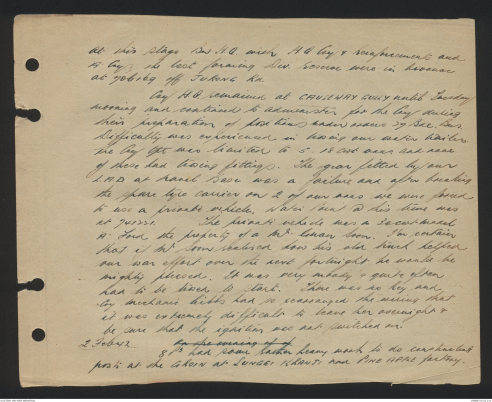 at this stage Bn H.Q. with H.Q. Coy & reinforcements and
Coy, the last forming Div. reserve were in bivouac
at 705169 off JURONG Rd.
Coy H.Q. remained at CAUSEWAY GULLY until Tuesday
morning and continued to administer for the Coy during
their preparation of positions under
Difficulty was experienced in towing our water trailers.
we Coy tpt was limited to 5. 18 cwt vans and none
of these had towing fittings. The gear fitted by our
L.A.D at Base was a failure and after breaking
the spare tyre carrier on 2 of our vans we were forced
to use a private vehicle. @ this time was
at 741551. The private vehicle was a 30 cwt model
A Ford the property of a Mr. Soon. I'm certain
that if Mr. Soon realised how his old truck helped
our war effort over the next fortnight he would be
mighty pleased. It was very shabby & quite often
had to be towed to start. There was no key and
Coy mechanic had so rearranged the wiring that
it was extremely difficult to leave her overnight &
be sure that the ignition was not switched on.
2 Feb 42. On the evening of
8 Pl. had some rather heavy work to do constructing
posts at the at SUNGEI KRANJI and PINE APPLE factory.